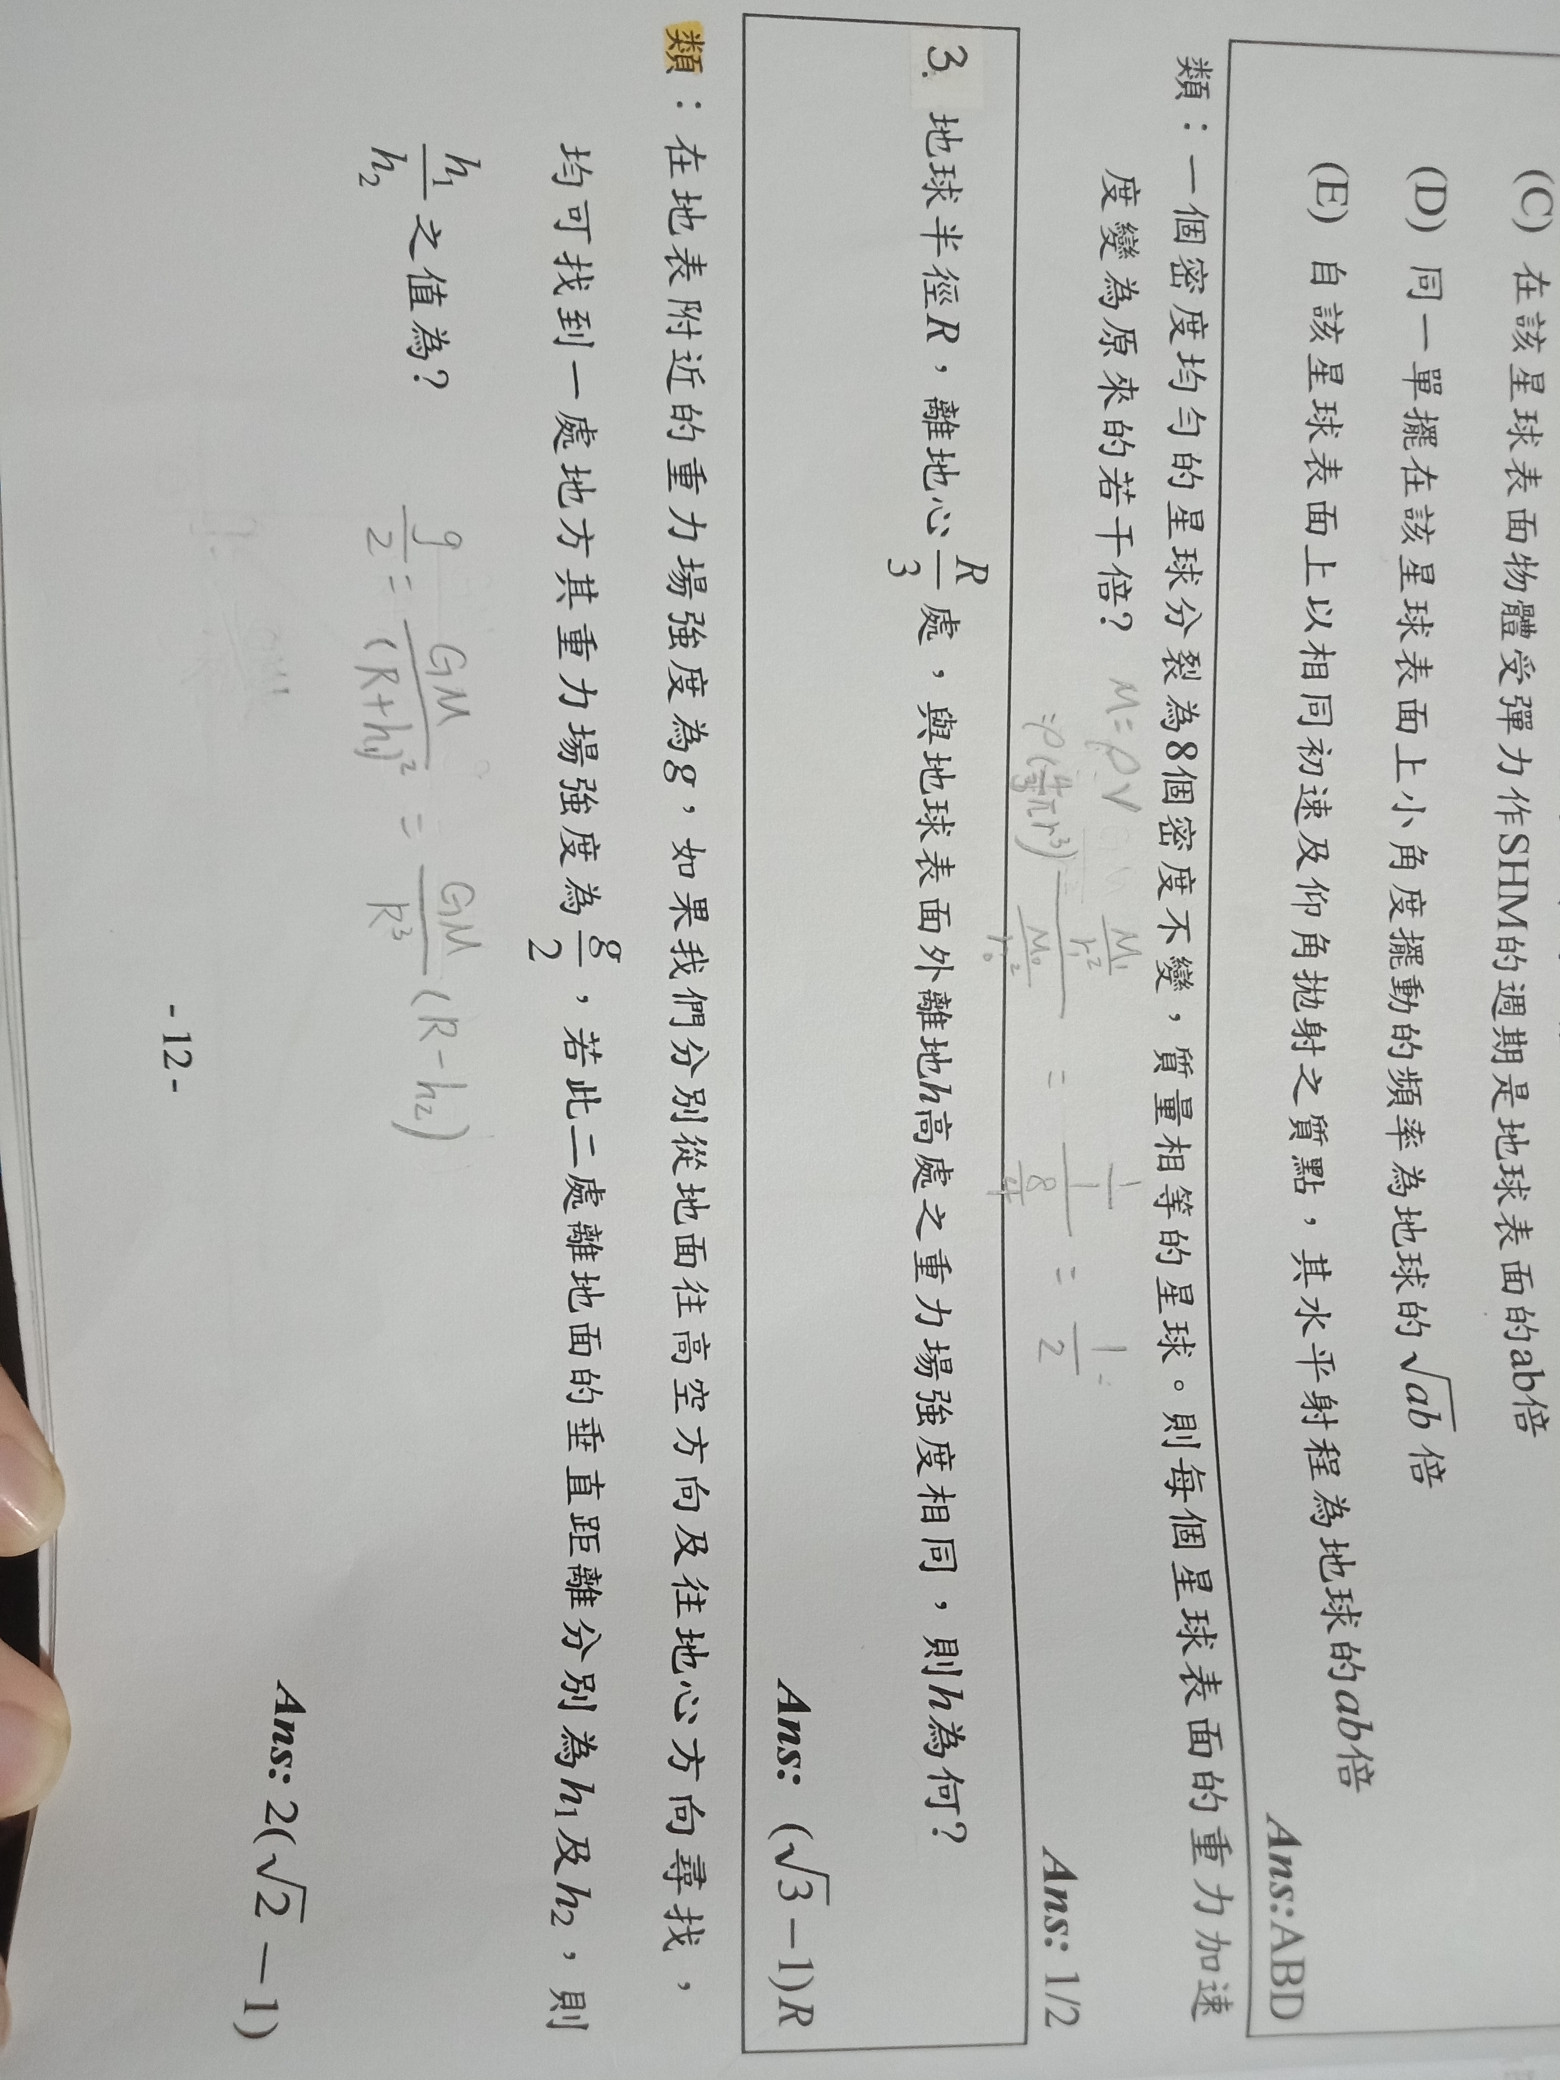 (C) 在該星球表面物體受彈力作SHM的週期是地球表面的ab倍
(D) 同一單擺在該星球表面上小角度擺動的頻率為地球的√ab 倍
(E) 自該星球表面上以相同初速及仰角拋射之質點，其水平射程為地球的ab倍
Ans:ABD
類：一個密度均勻的星球分裂為8個密度不變，質量相等的星球。則每個星球表面的重力加速
度變為原來的若干倍？ M=ρV
=ρ(4/3 πr³) = (M₁/r₁²)/(M₀/r₀²) = (1/8)/(1/4) = 1/2
Ans: 1/2
3. 地球半徑R，離地心R/3處，與地球表面外離地h高處之重力場強度相同，則h為何？
Ans: (√3−1)R
類：在地表附近的重力場強度為g，如果我們分別從地面往高空方向及往地心方向尋找，
均可找到一處地方其重力場強度為g/2，若此二處離地面的垂直距離分別為h₁及h₂，則
h₁/h₂之值為？
g/2 = GM/(R+h₁)² = GM/R³ (R-h₂)
Ans: 2(√2 −1)
- 12 -